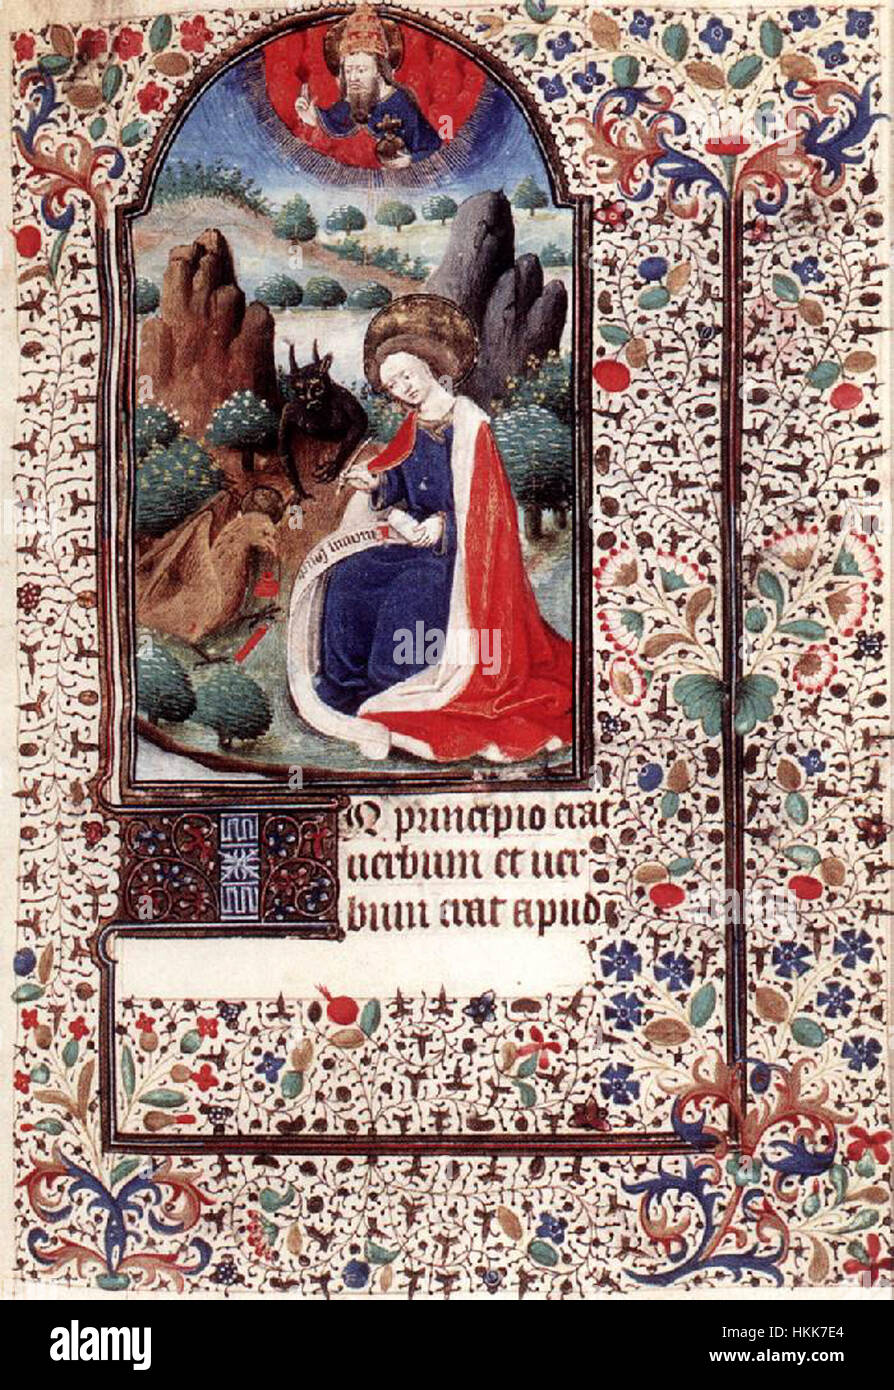 IN principio erat
uerbum et uer-
bum erat apud de
alamy
alamy
Image ID: HKK7E4
www.alamy.com